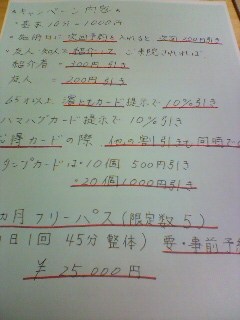 *キャンペーン内容*
・基本10分-1000円
・施術日に次回予約を入れると
500円引き
・友人・知人を紹介して ご来院されれば
紹介者 = 300円引き
友人 = 200円引き
65才以上 カード提示で10%引き
ハマハグカード提示で10%引き
カードの際 他の割引き
タンプカードは・10個 500円引き
・20個 1000円引き
カ月フリーパス(限定数5)
1日1回 45分整体) 要・事前予
¥25,000円